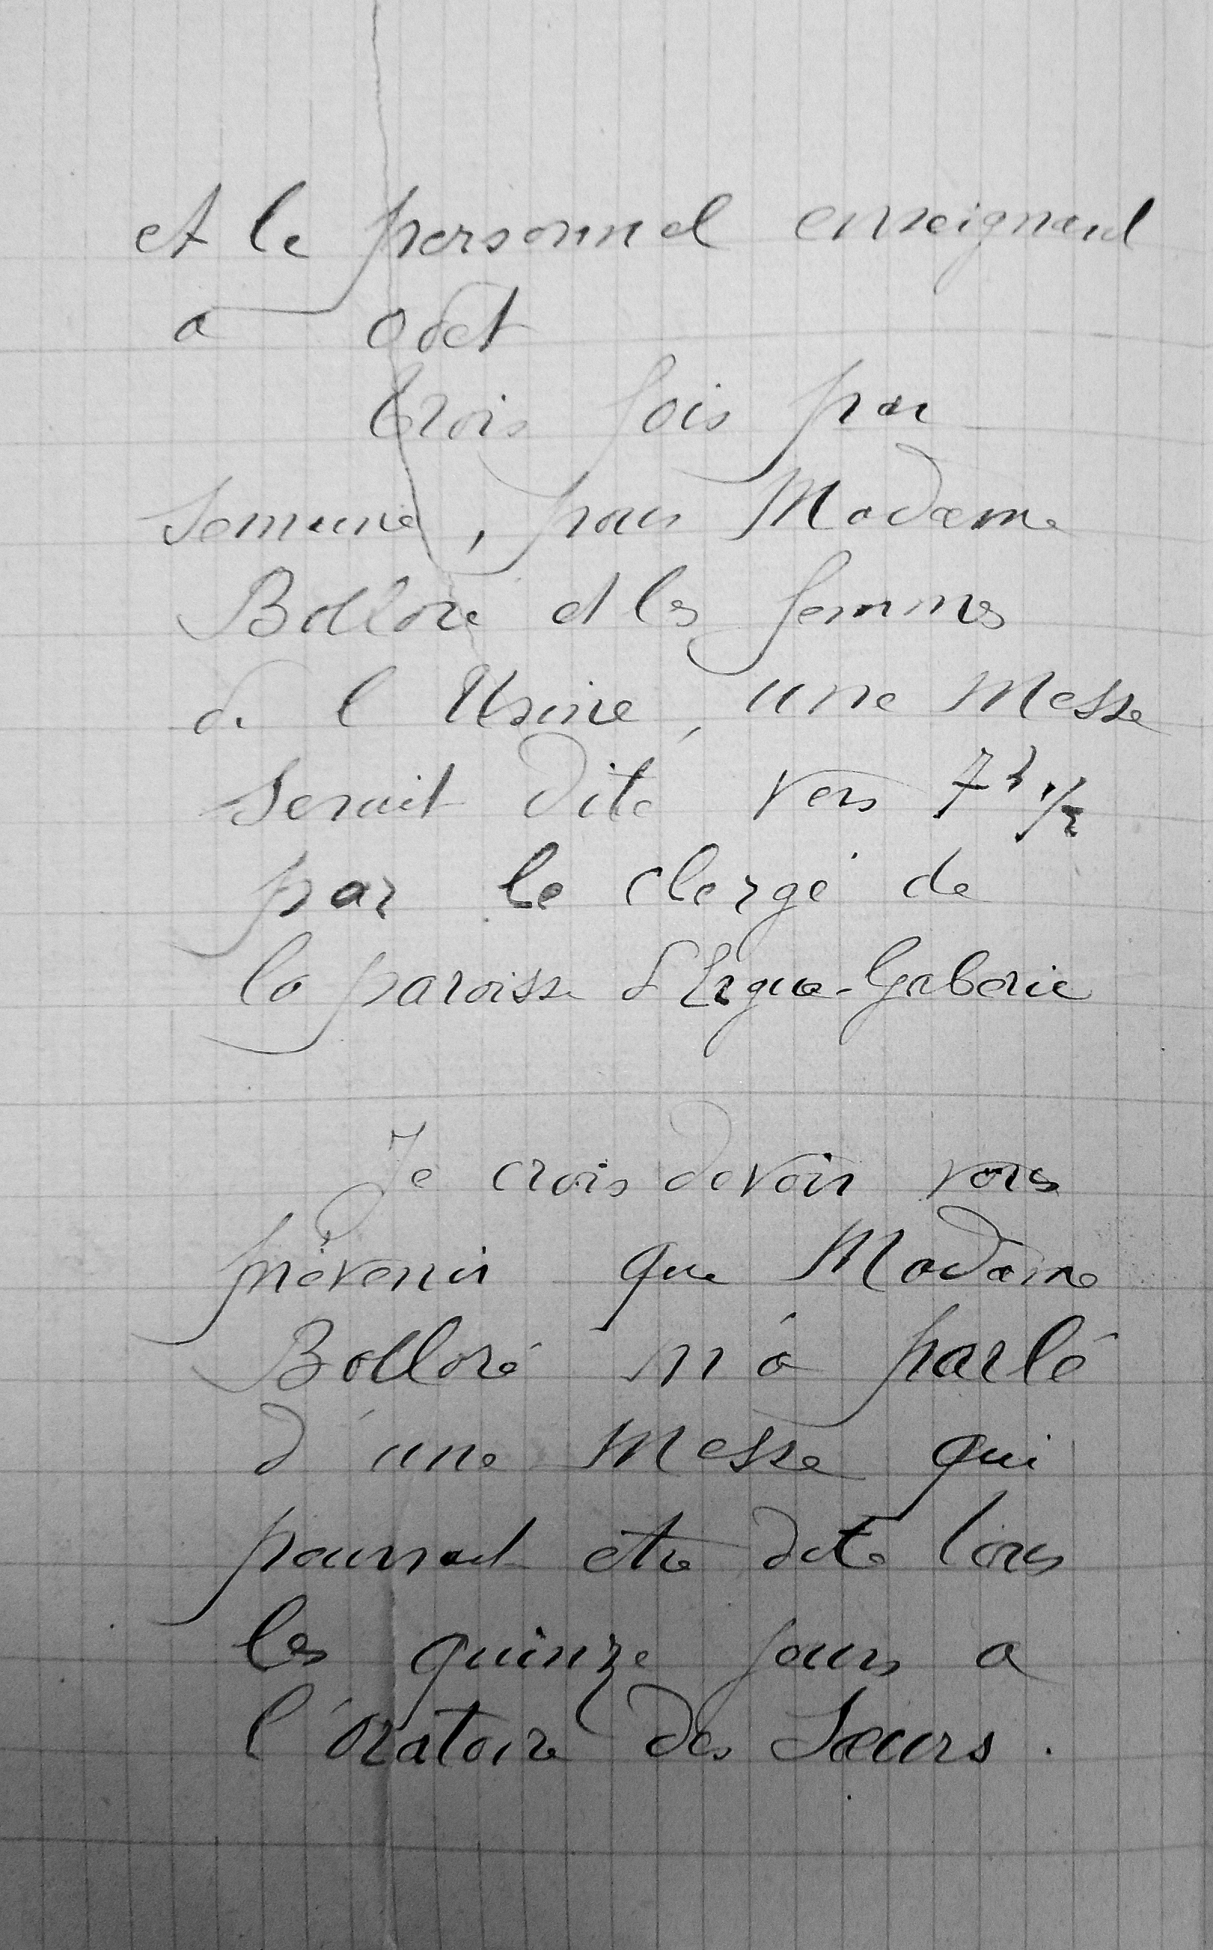 et le personnel enseignant
a Odet
Trois fois par
Semaine, pour Madame
Bolloré et les femmes
de l'Usine, une Messe
serait dite vers 7h 1/2
par le clergé de
la paroisse d'Ergué-Gabéric
Je crois devoir vous
prévenir que Madame
Bolloré m'a parlé
d'une Messe qui
pourrait être dite tous
les quinze jours a
l'Oratoire des Sœurs.